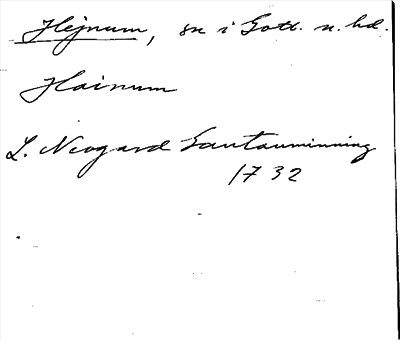 Hejnum, sn i Gotl. n. hd.
Hainum
L. Neogard Gautauminning
1732